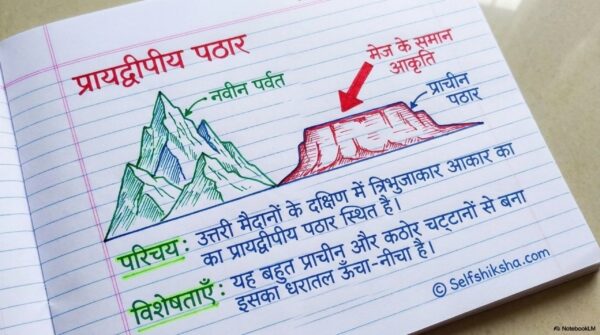 प्रायद्वीपीय पठार
नवीन पर्वत
मेज के समान
आकृति
प्राचीन
पठार
परिचय: उत्तरी मैदानों के दक्षिण में त्रिभुजाकार आकार का
का प्रायद्वीपीय पठार स्थित है।
विशेषताएँ: यह बहुत प्राचीन और कठोर चट्टानों से बना
इसका धरातल ऊँचा-नीचा है।
© Selfshiksha.com
NotebookLM